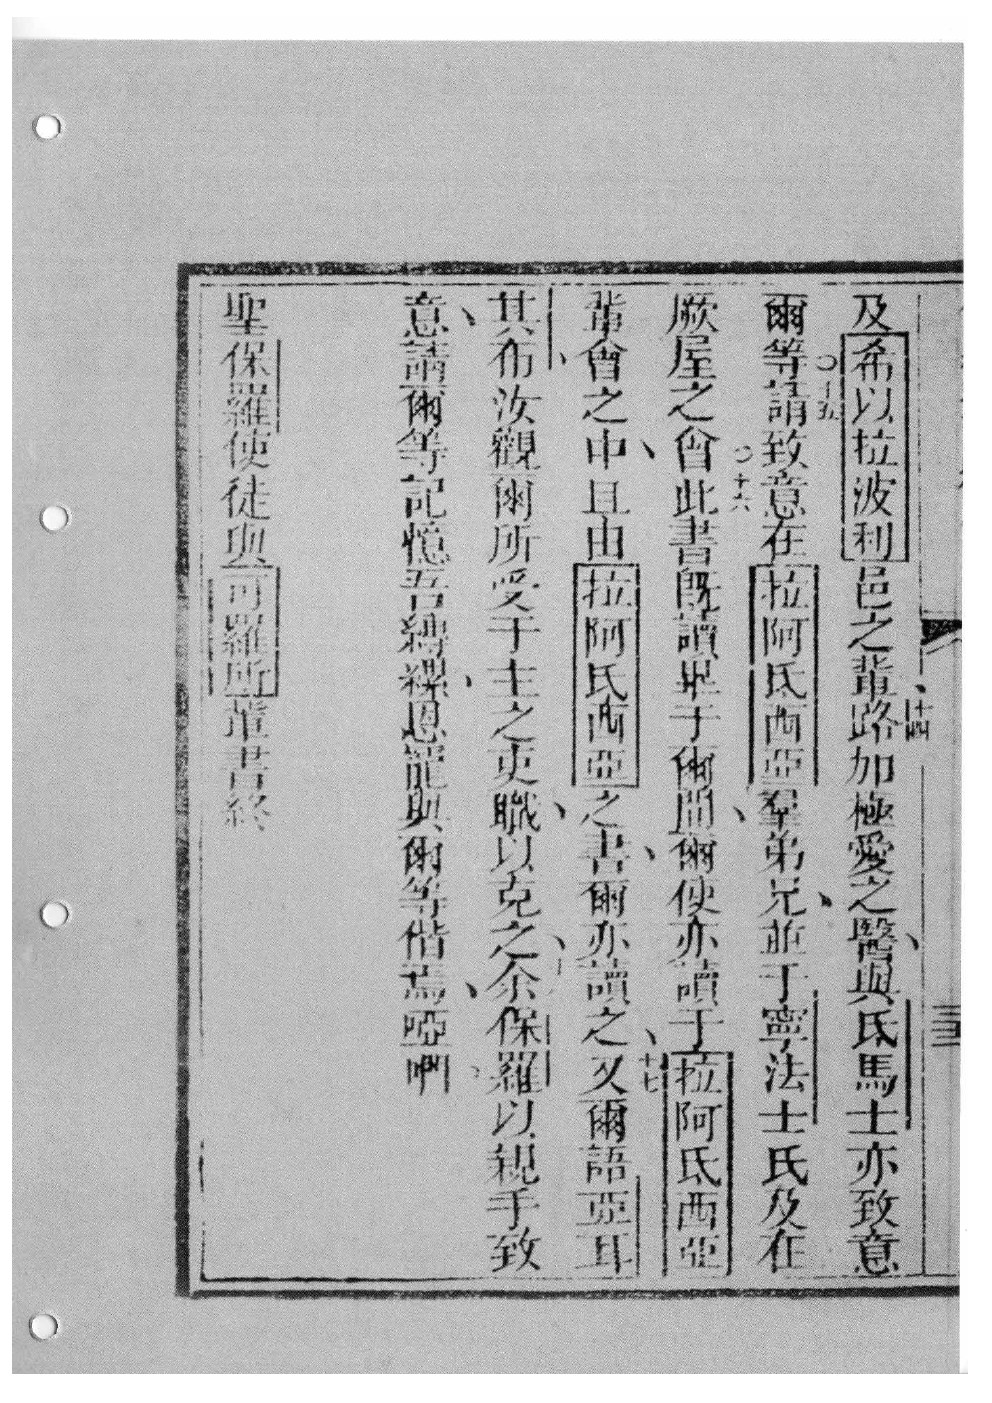 及希以拉波利邑之輩路加極愛之醫與氐馬士亦致意
十四
爾等請致意在拉阿氐西亞羣弟兄並于寧法士氐及在
○十五
厥屋之會此書旣讀畢于爾間爾使亦讀于拉阿氐西亞
○十六
輩會之中且由拉阿氐西亞之書爾亦讀之又爾語亞耳
十七
其布汝觀爾所受于主之吏職以克之余保羅以親手致
意請爾等記憶吾縛縲恩寵與爾等偕焉啞𠵽
聖保羅使徒與可羅所輩書終